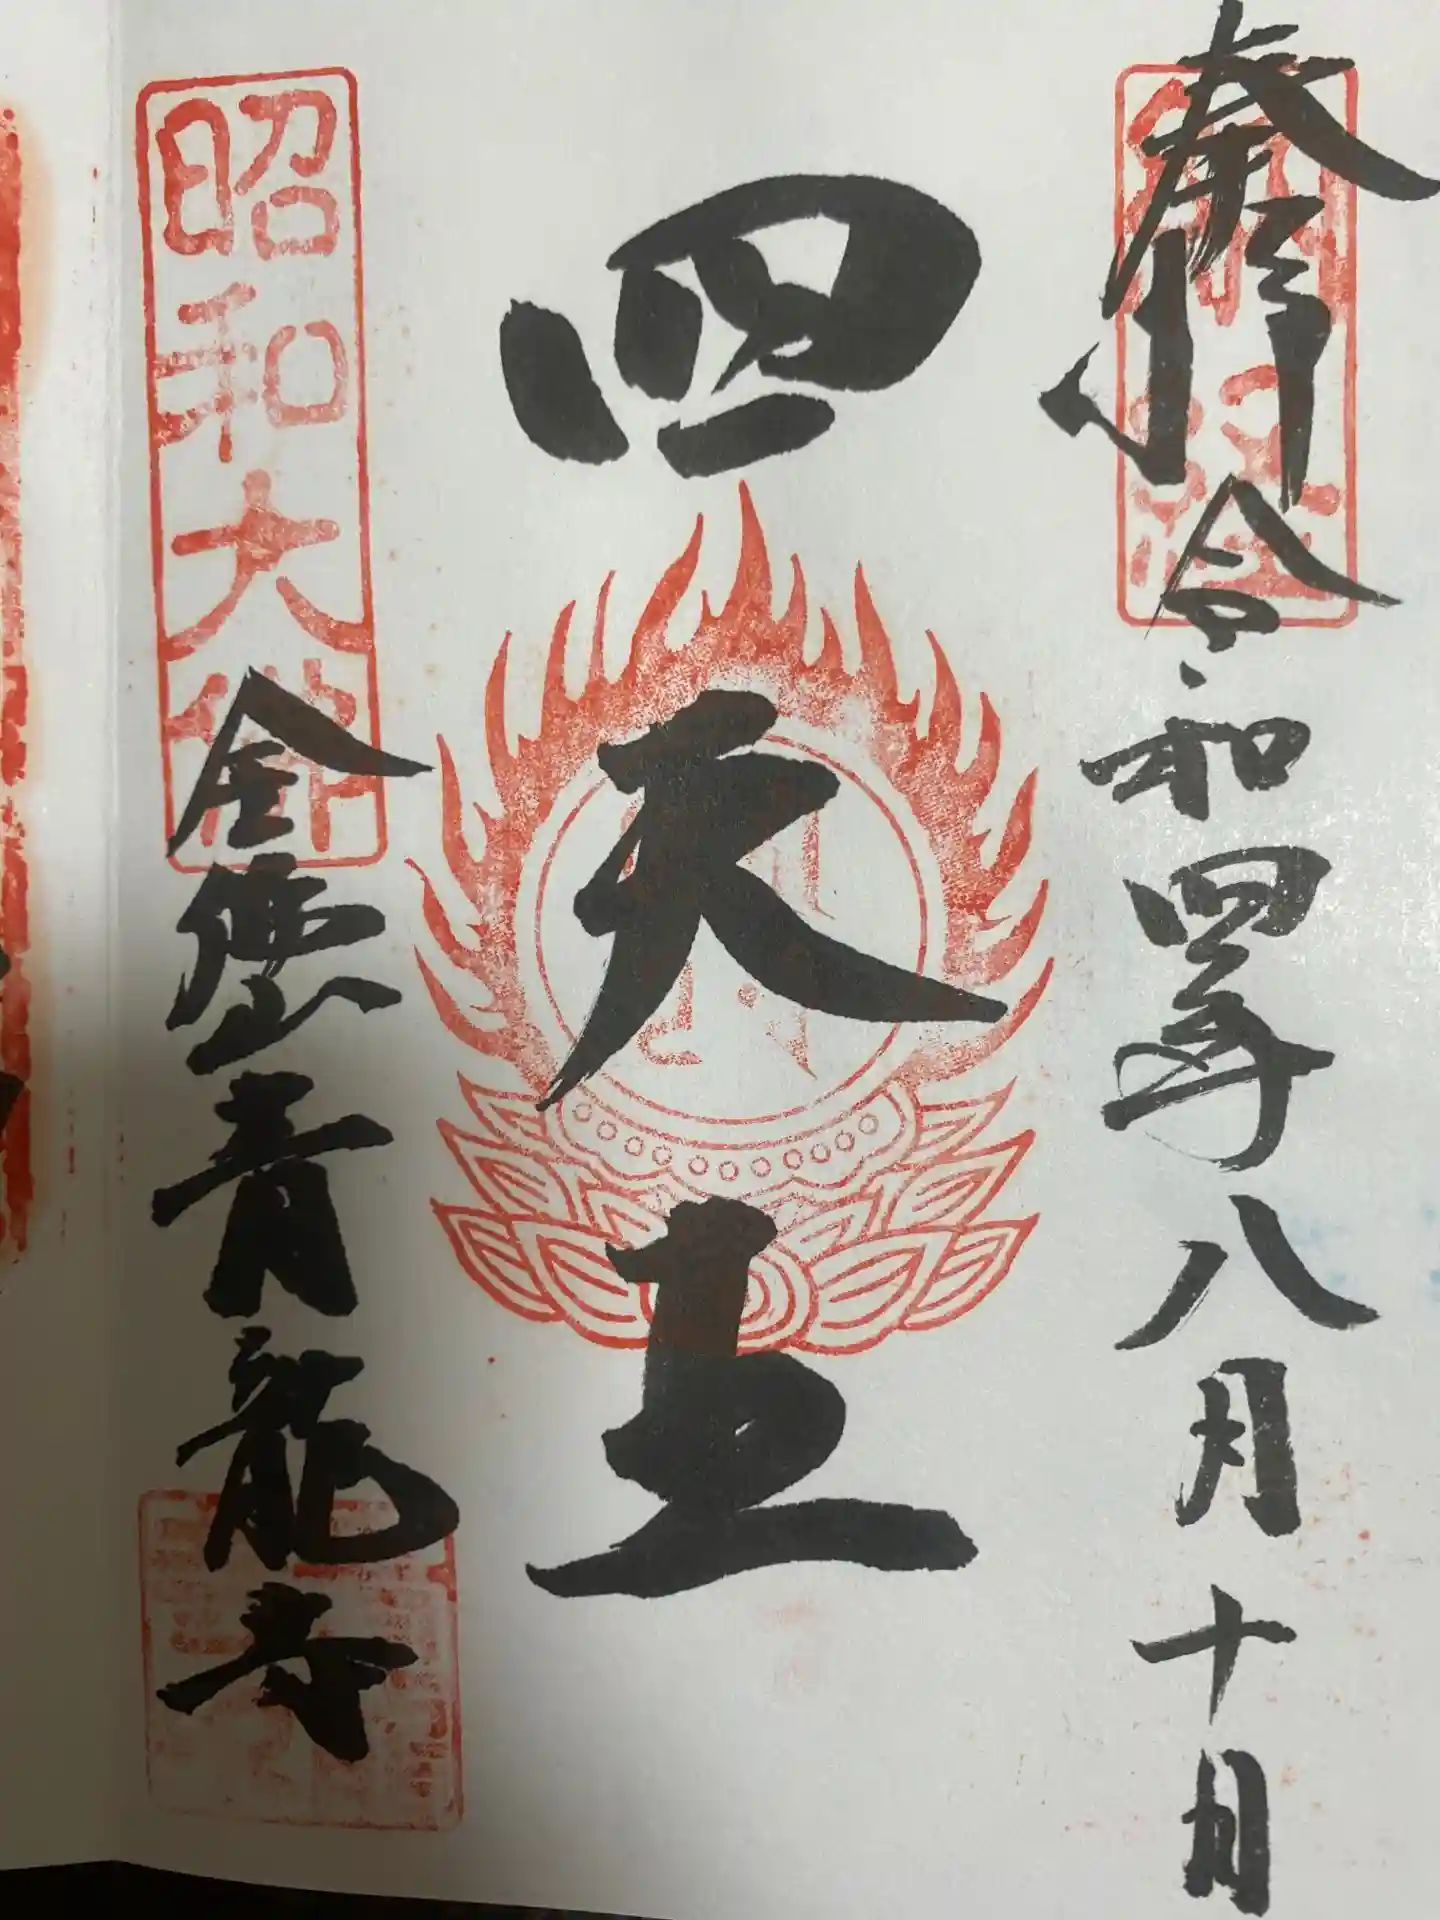 奉修 令和四年八月十日
四天王
昭和大佛
金堂青龍寺